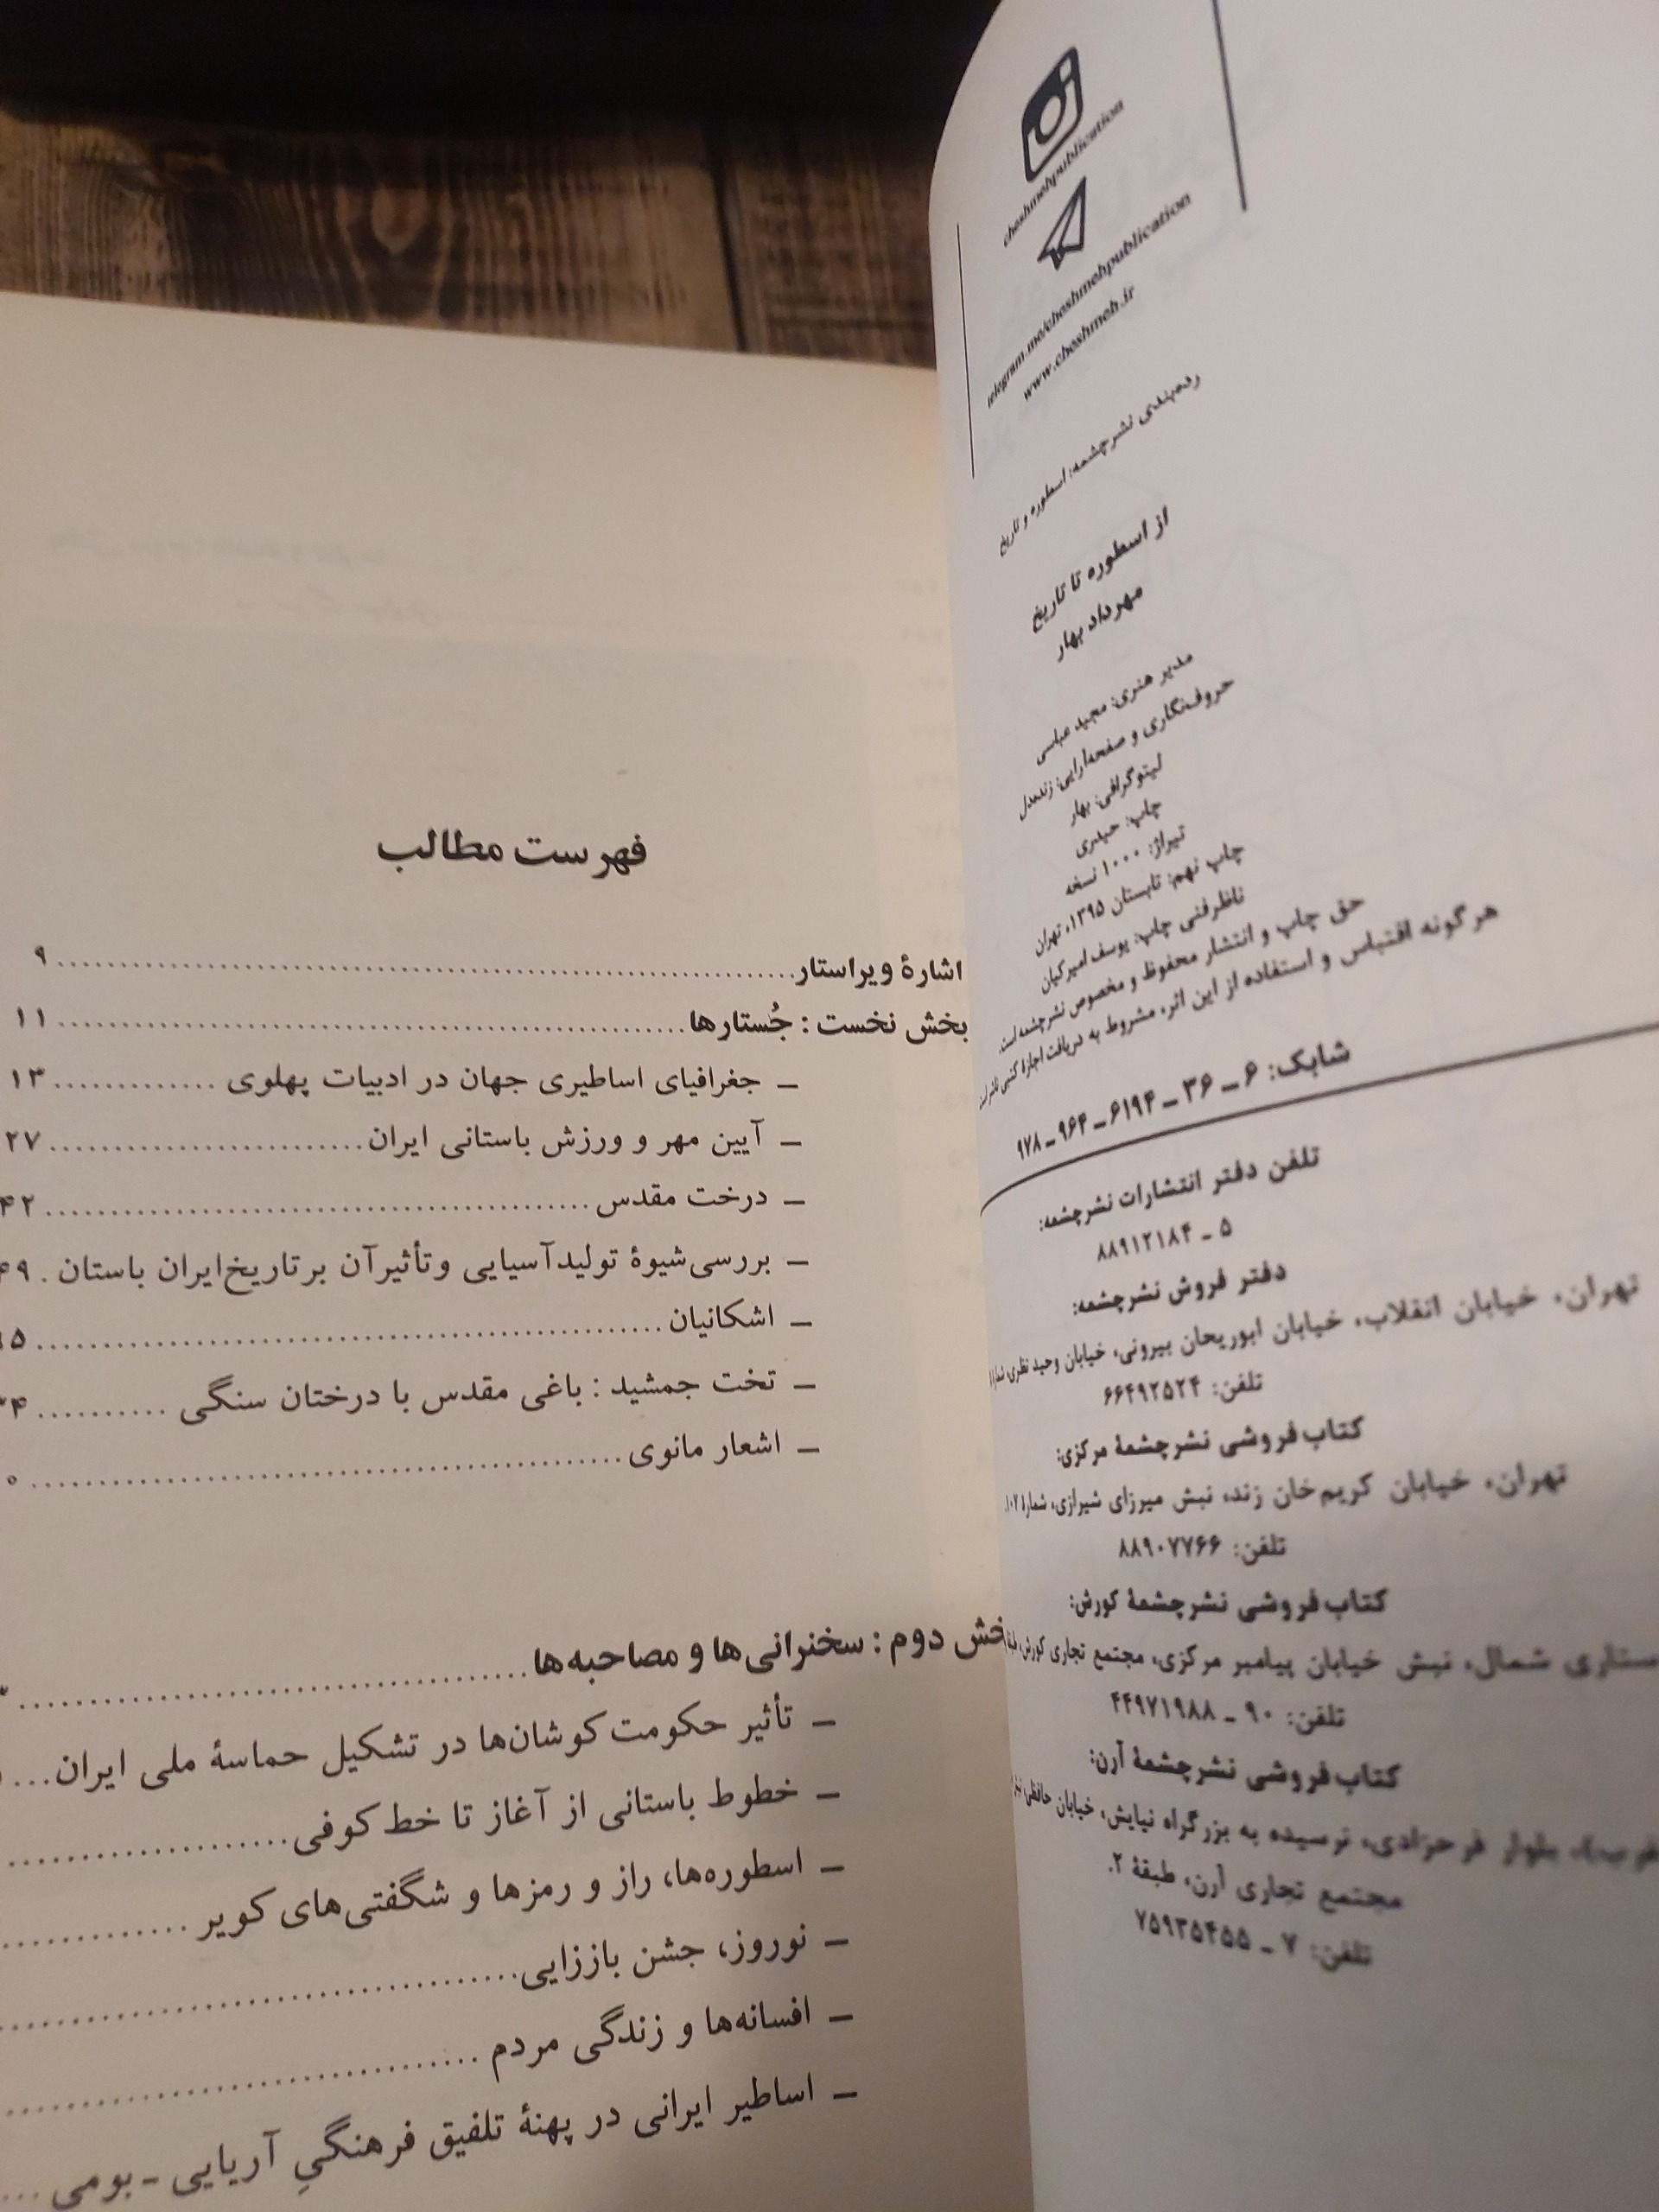 cheshmehpublication
telegram.me/cheshmehpublication
www.cheshmeh.ir
رده‌بندی نشرچشمه: اسطوره و تاریخ
از اسطوره تا تاریخ
مهرداد بهار
مدیر هنری: مجید عباسی
حروف‌نگاری و صفحه‌آرایی: زنده‌دل
لیتوگرافی: بهار
چاپ: حیدری
تیراژ: ۱۰۰۰ نسخه
چاپ نهم: تابستان ۱۳۹۵، تهران
ناظر فنی چاپ: یوسف امیرکیان
حق چاپ و انتشار محفوظ و مخصوص نشرچشمه است.
هرگونه اقتباس و استفاده از این اثر، مشروط به دریافت اجازهٔ کتبی ناشر است.
شابک: ۶ ـ ۳۶ ـ ۶۱۹۴ ـ ۹۶۴ ـ ۹۷۸
تلفن دفتر انتشارات نشرچشمه:
۵ ـ ۸۸۹۱۲۱۸۴
دفتر فروش نشرچشمه:
تهران، خیابان انقلاب، خیابان ابوریحان بیرونی، خیابان وحید نظری،
تلفن: ۶۶۴۹۲۵۲۴
کتاب‌فروشی نشرچشمهٔ مرکزی:
تهران، خیابان کریم‌خان زند، نبش میرزای شیرازی، شمارهٔ ۱۰۷.
تلفن: ۸۸۹۰۷۷۶۶
کتاب‌فروشی نشرچشمهٔ کورش:
ستاری شمال، نبش خیابان پیامبر مرکزی، مجتمع تجاری کورش،
تلفن: ۹۰ ـ ۴۴۹۷۱۹۸۸
کتاب‌فروشی نشرچشمهٔ آرن:
بلوار فرحزادی، نرسیده به بزرگراه نیایش، خیابان حافظی،
مجتمع تجاری آرن، طبقهٔ ۲.
تلفن: ۷ ـ ۷۵۹۳۵۴۵۵
فهرست مطالب
اشارهٔ ویراستار .......... ۹
بخش نخست : جُستارها .......... ۱۱
ـ جغرافیای اساطیری جهان در ادبیات پهلوی .......... ۱۳
ـ آیین مهر و ورزش باستانی ایران .......... ۲۷
ـ درخت مقدس .......... ۴۲
ـ بررسی شیوهٔ تولید آسیایی و تأثیر آن بر تاریخ ایران باستان . ۴۹
ـ اشکانیان ..........
ـ تخت جمشید : باغی مقدس با درختان سنگی ..........
ـ اشعار مانوی ..........
بخش دوم : سخنرانی‌ها و مصاحبه‌ها ..........
ـ تأثیر حکومت کوشان‌ها در تشکیل حماسهٔ ملی ایران ...
ـ خطوط باستانی از آغاز تا خط کوفی ..........
ـ اسطوره‌ها، راز و رمزها و شگفتی‌های کویر ..........
ـ نوروز، جشن باززایی ..........
ـ افسانه‌ها و زندگی مردم ..........
ـ اساطیر ایرانی در پهنهٔ تلفیق فرهنگیِ آریایی ـ بومی ...